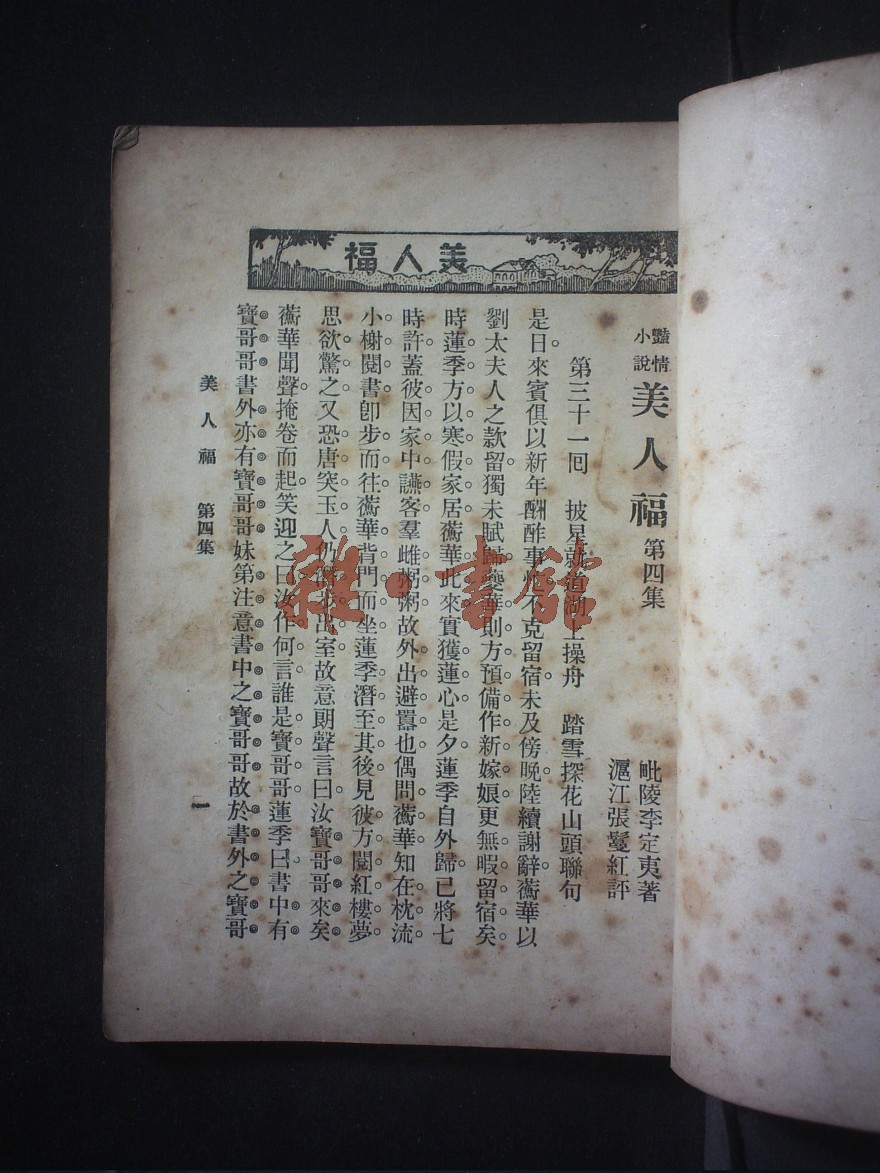 美人福
豔情小說 美人福 第四集
毗陵李定夷著
滬江張鬘紅評
第三十一回 披星就道湖上操舟 踏雪探花山頭聯句
是日來賓俱以新年酬酢事忙不克留宿未及傍晚陸續謝辭蘅華以
劉太夫人之款留獨未賦歸 華則方預備作新嫁娘更無暇留宿矣
時蓮季方以寒假家居蘅華此來實獲蓮心是夕蓮季自外歸已將七
時許蓋彼因家中讌客羣雌粥粥故外出避囂也偶問蘅華知在枕流
小榭閱書卽步而往蘅華背門而坐蓮季潛至其後見彼方閱紅樓夢
思欲驚之又恐唐突玉人仍 出室故意朗聲言曰汝寶哥哥來矣
蘅華聞聲掩卷而起笑迎之曰汝作何言誰是寶哥哥蓮季曰書中有
寶哥哥書外亦有寶哥哥妹第注意書中之寶哥哥故於書外之寶哥
美人福 第四集
一
雜·書館